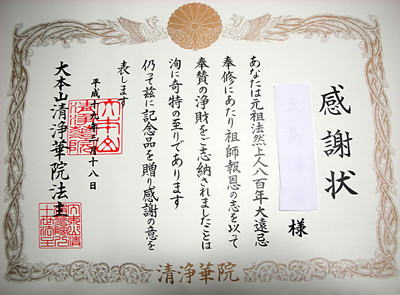 感謝状
様
あなたは元祖法然上人八百年大遠忌
奉修にあたり祖師報恩の志を以って
奉賛の浄財をご志納されましたことは
洵に奇特の至りであります
仍って茲に記念品を贈り感謝の意を
表します
平成十九年 月十八日
大本山清浄華院法主
清浄華院